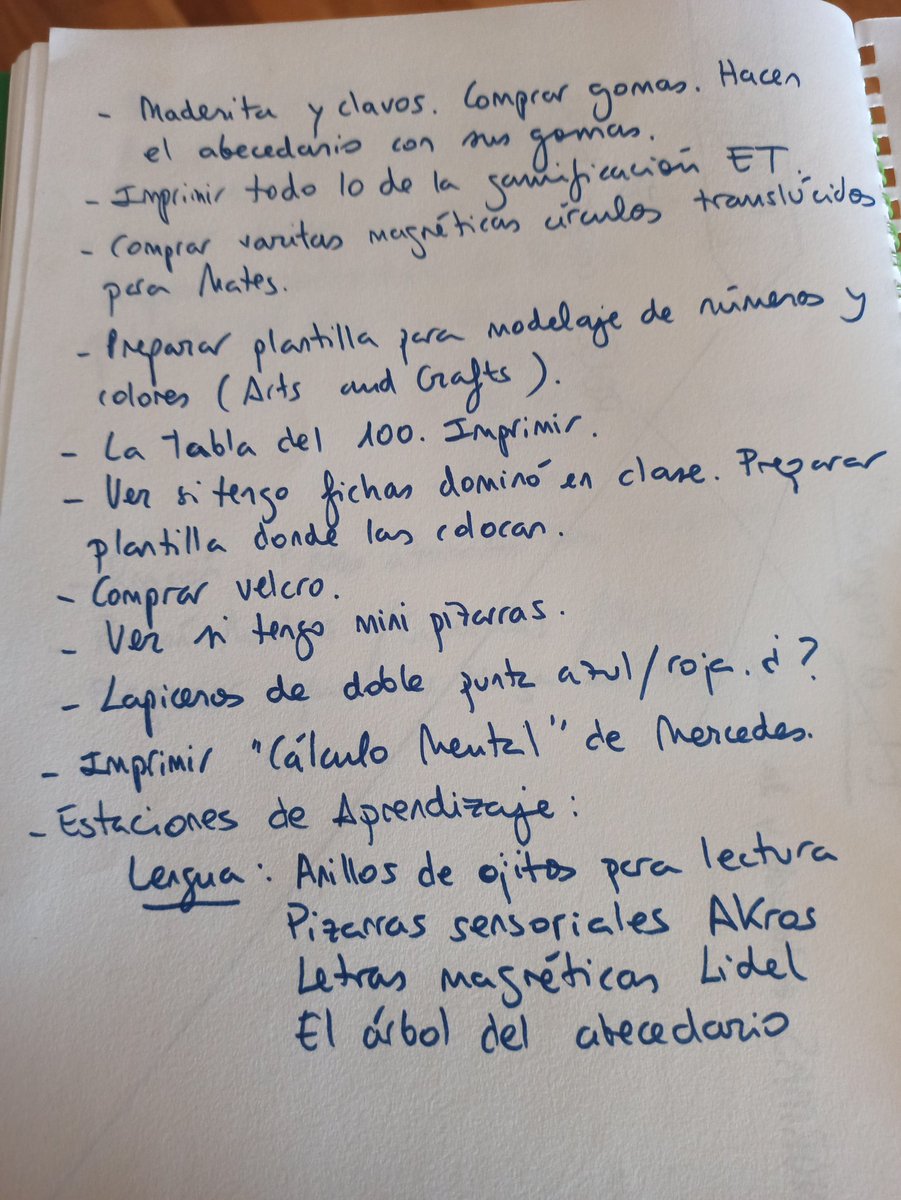 - Maderita y clavos. Comprar gomas. Hacen
el abecedario con sus gomas.
- Imprimir todo lo de la gamificación ET.
- Comprar varitas magnéticas círculos translúcidos
para Mates.
- Preparar plantilla para modelaje de números y
colores (Arts and Crafts).
- La Tabla del 100. Imprimir.
- Ver si tengo fichas dominó en clase. Preparar
plantilla donde las colocan.
- Comprar velcro.
- Ver si tengo mini pizarras.
- Lapiceros de doble punta azul/roja. ¿?
- Imprimir "Cálculo Mental" de Mercedes.
- Estaciones de Aprendizaje:
Lengua: Anillos de ojitos para lectura
Pizarras sensoriales AKros
Letras magnéticas Lidel
El árbol del abecedario